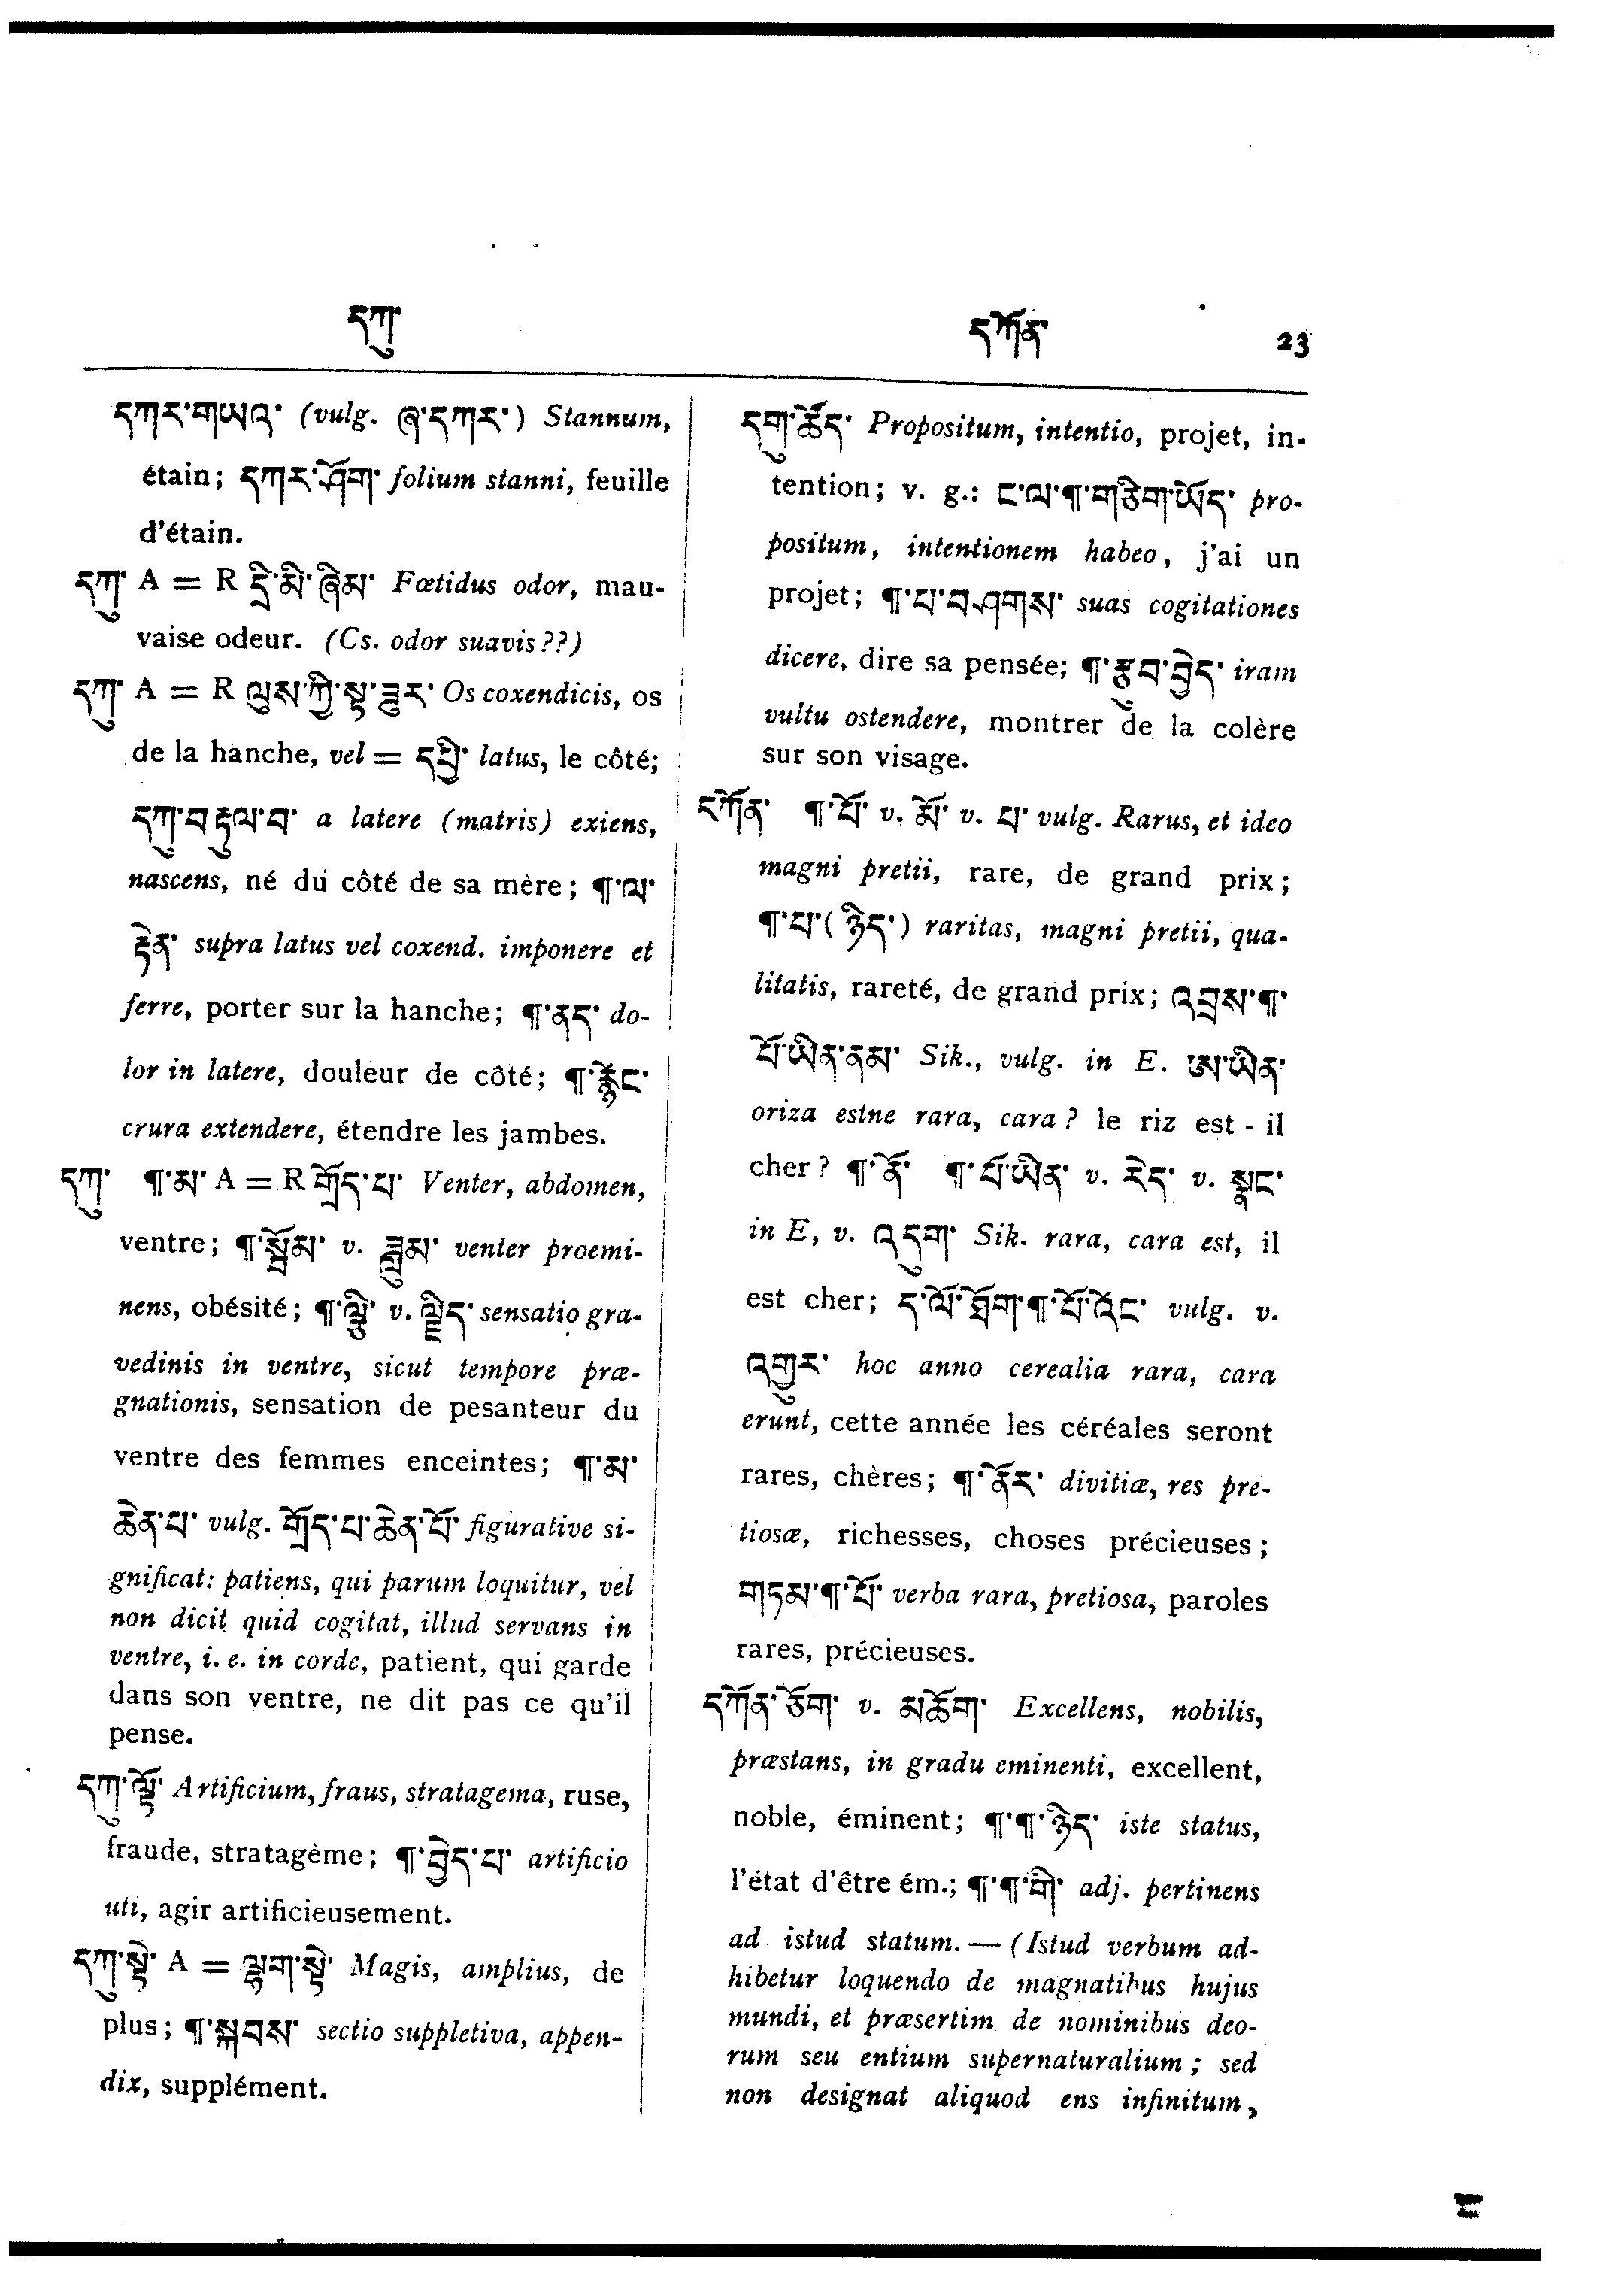 དཀུ་
དཀོན་ 23
དཀར་གཡའ་ (vulg. ཞ་དཀར་) Stannum,
étain; དཀར་ཤོག་ folium stanni, feuille
d'étain.
དཀུ་ A = R དྲི་མི་ཞིམ་ Fœtidus odor, mau-
vaise odeur. (Cs. odor suavis??)
དཀུ་ A = R ལུས་ཀྱི་སྟ་ཟུར་ Os coxendicis, os
de la hanche, vel = དཔྱི་ latus, le côté;
དཀུ་བརྟོལ་བ་ a latere (matris) exiens,
nascens, né du côté de sa mère; ༡་ལ་
རྟེན་ supra latus vel coxend. imponere et
ferre, porter sur la hanche; ༡་ནད་ do-
lor in latere, douleur de côté; ༡་རྐྱོང་
crura extendere, étendre les jambes.
དཀུ་ ¶་མ་ A = R གྲོད་པ་ Venter, abdomen,
ventre; ¶་སྦོམ་ v. ཟླུམ་ venter proemi-
nens, obésité; ¶་ལྕི་ v. ལྗིད་ sensatio gra-
vedinis in ventre, sicut tempore præ-
gnationis, sensation de pesanteur du
ventre des femmes enceintes; ¶་མ་
ཆེན་པ་ vulg. གྲོད་པ་ཆེན་པོ་ figurative si-
gnificat: patiens, qui parum loquitur, vel
non dicit quid cogitat, illud servans in
ventre, i. e. in corde, patient, qui garde
dans son ventre, ne dit pas ce qu'il
pense.
དཀུ་ལྟོ་ Artificium, fraus, stratagema, ruse,
fraude, stratagème; ¶་བྱེད་པ་ artificio
uti, agir artificieusement.
དཀུ་སྟེ་ A = ལྷག་སྟེ་ Magis, amplius, de
plus; ¶་སྐབས་ sectio suppletiva, appen-
dix, supplément.
དགུ་ཚོད་ Propositum, intentio, projet, in-
tention; v. g.: ང་ལ་¶་གཅིག་ཡོད་ pro-
positum, intentionem habeo, j'ai un
projet; ¶་པ་བཤགས་ suas cogitationes
dicere, dire sa pensée; ¶་རྩུབ་བྱེད་ iram
vultu ostendere, montrer de la colère
sur son visage.
དཀོན་ ¶་པོ་ v. མོ་ v. པ་ vulg. Rarus, et ideo
magni pretii, rare, de grand prix;
¶་པ་(ཉིད་) raritas, magni pretii, qua-
litatis, rareté, de grand prix; འབྲས་¶་
པོ་ཡིན་ནམ་ Sik., vulg. in E. ཨ་ཡིན་
oriza estne rara, cara? le riz est - il
cher? ¶་ནོ་ ¶་པོ་ཡིན་ v. རེད་ v. སྣང་
in E, v. འདུག་ Sik. rara, cara est, il
est cher; ད་ལོ་ཐོག་¶་པོ་འོང་ vulg. v.
འགྱུར་ hoc anno cerealia rara, cara
erunt, cette année les céréales seront
rares, chères; ¶་ནོར་ divitiæ, res pre-
tiosæ, richesses, choses précieuses;
གཏམ་¶་པོ་ verba rara, pretiosa, paroles
rares, précieuses.
དཀོན་ཅོག་ v. མཆོག་ Excellens, nobilis,
præstans, in gradu eminenti, excellent,
noble, éminent; ¶་¶་ཉིད་ iste status,
l'état d'être ém.; ¶་¶་གི་ adj. pertinens
ad istud statum. — (Istud verbum ad-
hibetur loquendo de magnatibus hujus
mundi, et præsertim de nominibus deo-
rum seu entium supernaturalium; sed
non designat aliquod ens infinitum,